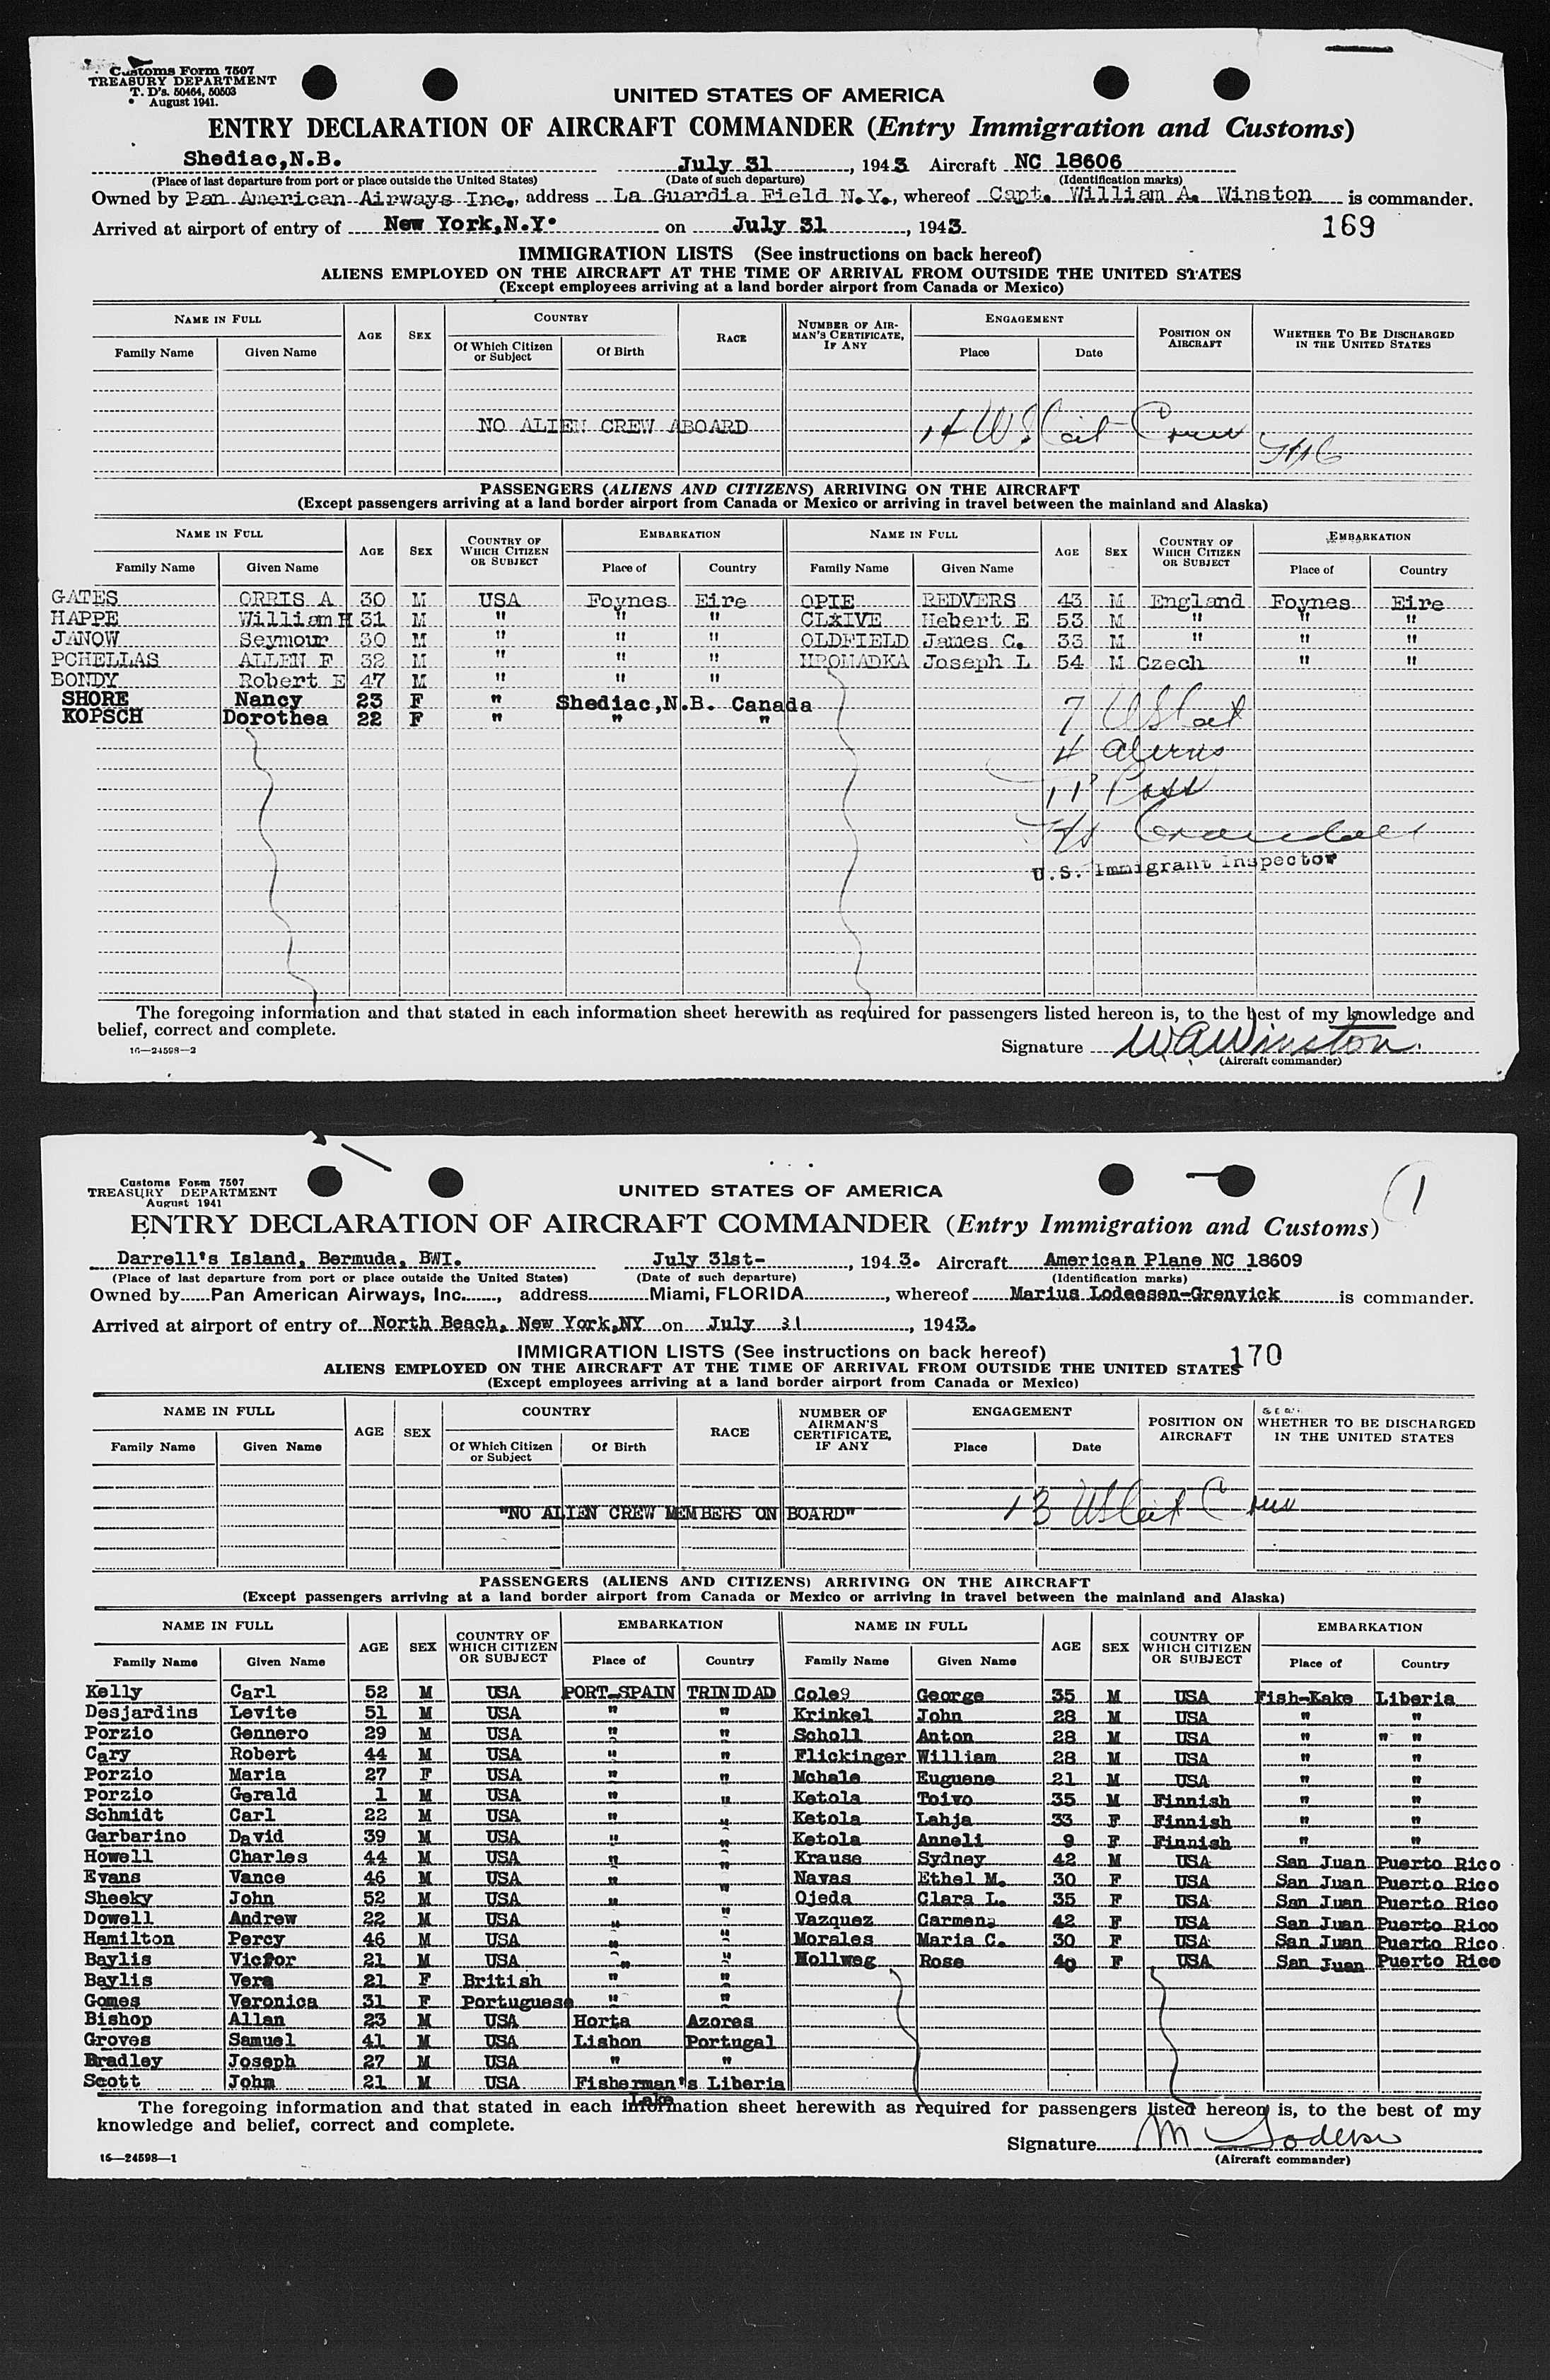 Customs Form 7507
TREASURY DEPARTMENT
T. D's. 50464, 50503
August 1941.
UNITED STATES OF AMERICA
ENTRY DECLARATION OF AIRCRAFT COMMANDER (Entry Immigration and Customs)
Shediac,N.B. July 31, 1943 Aircraft NC 18606
(Place of last departure from port or place outside the United States) (Date of such departure) (Identification marks)
Owned by Pan American Airways Inc., address La Guardia Field N.Y., whereof Capt. William A. Winston is commander.
Arrived at airport of entry of New York,N.Y. on July 31, 1943.
169
IMMIGRATION LISTS (See instructions on back hereof)
ALIENS EMPLOYED ON THE AIRCRAFT AT THE TIME OF ARRIVAL FROM OUTSIDE THE UNITED STATES
(Except employees arriving at a land border airport from Canada or Mexico)
NAME IN FULL AGE SEX COUNTRY RACE NUMBER OF AIRMAN'S CERTIFICATE, IF ANY ENGAGEMENT POSITION ON AIRCRAFT WHETHER TO BE DISCHARGED IN THE UNITED STATES
Family Name Given Name Of Which Citizen or Subject Of Birth Place Date
NO ALIEN CREW ABOARD 14 US Cit Crew
PASSENGERS (ALIENS AND CITIZENS) ARRIVING ON THE AIRCRAFT
(Except passengers arriving at a land border airport from Canada or Mexico or arriving in travel between the mainland and Alaska)
NAME IN FULL AGE SEX COUNTRY OF WHICH CITIZEN OR SUBJECT EMBARKATION NAME IN FULL AGE SEX COUNTRY OF WHICH CITIZEN OR SUBJECT EMBARKATION
Family Name Given Name Place of Country Family Name Given Name Place of Country
GATES ORRIS A 30 M USA Foynes Eire OPIE REDVERS 43 M England Foynes Eire
HAPPE William H 31 M " " " CLXIVE Hebert E 53 M " " "
JANOW Seymour 30 M " " " OLDFIELD James C. 33 M " " "
PCHELLAS ALLEN F 32 M " " " HROMADKA Joseph L 54 M Czech " "
BONDY Robert E 47 M " " "
SHORE Nancy 23 F " Shediac,N.B. Canada
KOPSCH Dorothea 22 F " " "
7 US Cit
4 Aliens
11 Pass
Crandall
U.S. Immigrant Inspector
The foregoing information and that stated in each information sheet herewith as required for passengers listed hereon is, to the best of my knowledge and
belief, correct and complete.
16—24598—2
Signature W A Winston.
(Aircraft commander)
Customs Form 7507
TREASURY DEPARTMENT
August 1941
1
UNITED STATES OF AMERICA
ENTRY DECLARATION OF AIRCRAFT COMMANDER (Entry Immigration and Customs)
Darrell's Island, Bermuda, BWI. July 31st-, 1943. Aircraft American Plane NC 18609
(Place of last departure from port or place outside the United States) (Date of such departure) (Identification marks)
Owned by Pan American Airways, Inc., address Miami, FLORIDA, whereof Marius Lodeesen-Grenvick is commander.
Arrived at airport of entry of North Beach, New York,NY on July 31, 1943.
170
IMMIGRATION LISTS (See instructions on back hereof)
ALIENS EMPLOYED ON THE AIRCRAFT AT THE TIME OF ARRIVAL FROM OUTSIDE THE UNITED STATES
(Except employees arriving at a land border airport from Canada or Mexico)
NAME IN FULL AGE SEX COUNTRY RACE NUMBER OF AIRMAN'S CERTIFICATE, IF ANY ENGAGEMENT POSITION ON AIRCRAFT WHETHER TO BE DISCHARGED IN THE UNITED STATES
Family Name Given Name Of Which Citizen or Subject Of Birth Place Date
"NO ALIEN CREW MEMBERS ON BOARD" 13 US Cit Crew
PASSENGERS (ALIENS AND CITIZENS) ARRIVING ON THE AIRCRAFT
(Except passengers arriving at a land border airport from Canada or Mexico or arriving in travel between the mainland and Alaska)
NAME IN FULL AGE SEX COUNTRY OF WHICH CITIZEN OR SUBJECT EMBARKATION NAME IN FULL AGE SEX COUNTRY OF WHICH CITIZEN OR SUBJECT EMBARKATION
Family Name Given Name Place of Country Family Name Given Name Place of Country
Kelly Carl 52 M USA PORT-SPAIN TRINIDAD Cole9 George 35 M USA Fish-Kake Liberia
Desjardins Levite 51 M USA " " Krinkel John 28 M USA " "
Porzio Gennero 29 M USA " " Scholl Anton 28 M USA " " "
Cary Robert 44 M USA " " Flickinger William 28 M USA " "
Porzio Maria 27 F USA " " Mchale Euguene 21 M USA " "
Porzio Gerald 1 M USA " " Ketola Toivo 35 M Finnish " "
Schmidt Carl 22 M USA " " Ketola Lahja 33 F Finnish " "
Garbarino David 39 M USA " " Ketola Anneli 9 F Finnish " "
Howell Charles 44 M USA " " Krause Sydney 42 M USA San Juan Puerto Rico
Evans Vance 46 M USA " " Navas Ethel M. 30 F USA San Juan Puerto Rico
Sheeky John 52 M USA " " Ojeda Clara L. 35 F USA San Juan Puerto Rico
Dowell Andrew 22 M USA " " Vazquez Carmen 42 F USA San Juan Puerto Rico
Hamilton Percy 46 M USA " " Morales Maria C. 30 F USA San Juan Puerto Rico
Baylis Victor 21 M USA " " Hollweg Rose 40 F USA San Juan Puerto Rico
Baylis Vera 21 F British " "
Gomes Veronica 31 F Portuguese " "
Bishop Allan 23 M USA Horta Azores
Groves Samuel 41 M USA Lisbon Portugal
Bradley Joseph 27 M USA " "
Scott John 21 M USA Fisherman's Liberia
Lake
The foregoing information and that stated in each information sheet herewith as required for passengers listed hereon is, to the best of my
knowledge and belief, correct and complete.
16—24598—1
Signature M Lodeesen
(Aircraft commander)